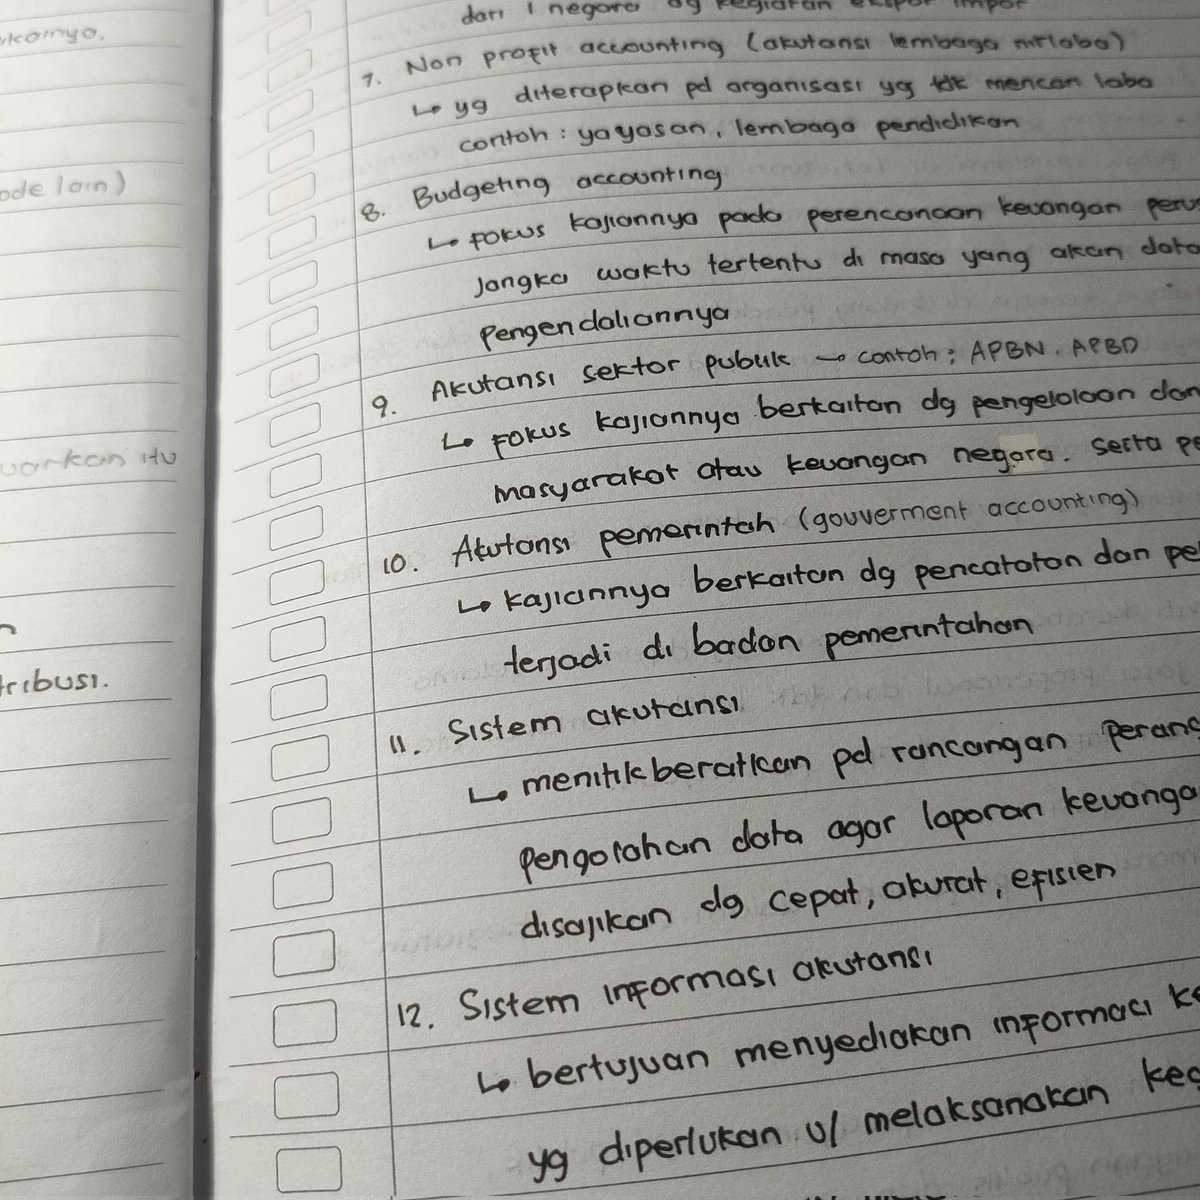 kainya.
ode lain)
uarkan itu
n
tribusi.
dari 1 negara dg kegiatan ekspor impor
7. Non profit accounting (akutansi lembaga nirlaba)
↳ yg diterapkan pd organisasi yg tdk mencari laba
contoh : yayasan, lembaga pendidikan
8. Budgeting accounting
↳ fokus kajiannya pada perencanaan keuangan perus
jangka waktu tertentu di masa yang akan data
pengendaliannya
9. Akutansi sektor publik → contoh : APBN, APBD
↳ fokus kajiannya berkaitan dg pengelolaan dan
masyarakat atau keuangan negara. serta pe
10. Akutansi pemerintah (gouverment accounting)
↳ kajiannya berkaitan dg pencatatan dan pe
terjadi di badan pemerintahan
11. Sistem akutansi
↳ menitikberatkan pd rancangan perang
pengolahan data agar laporan keuanga
disajikan dg cepat, akurat, efisien
12. Sistem informasi akutansi
↳ bertujuan menyediakan informasi ke
yg diperlukan u/ melaksanakan keg